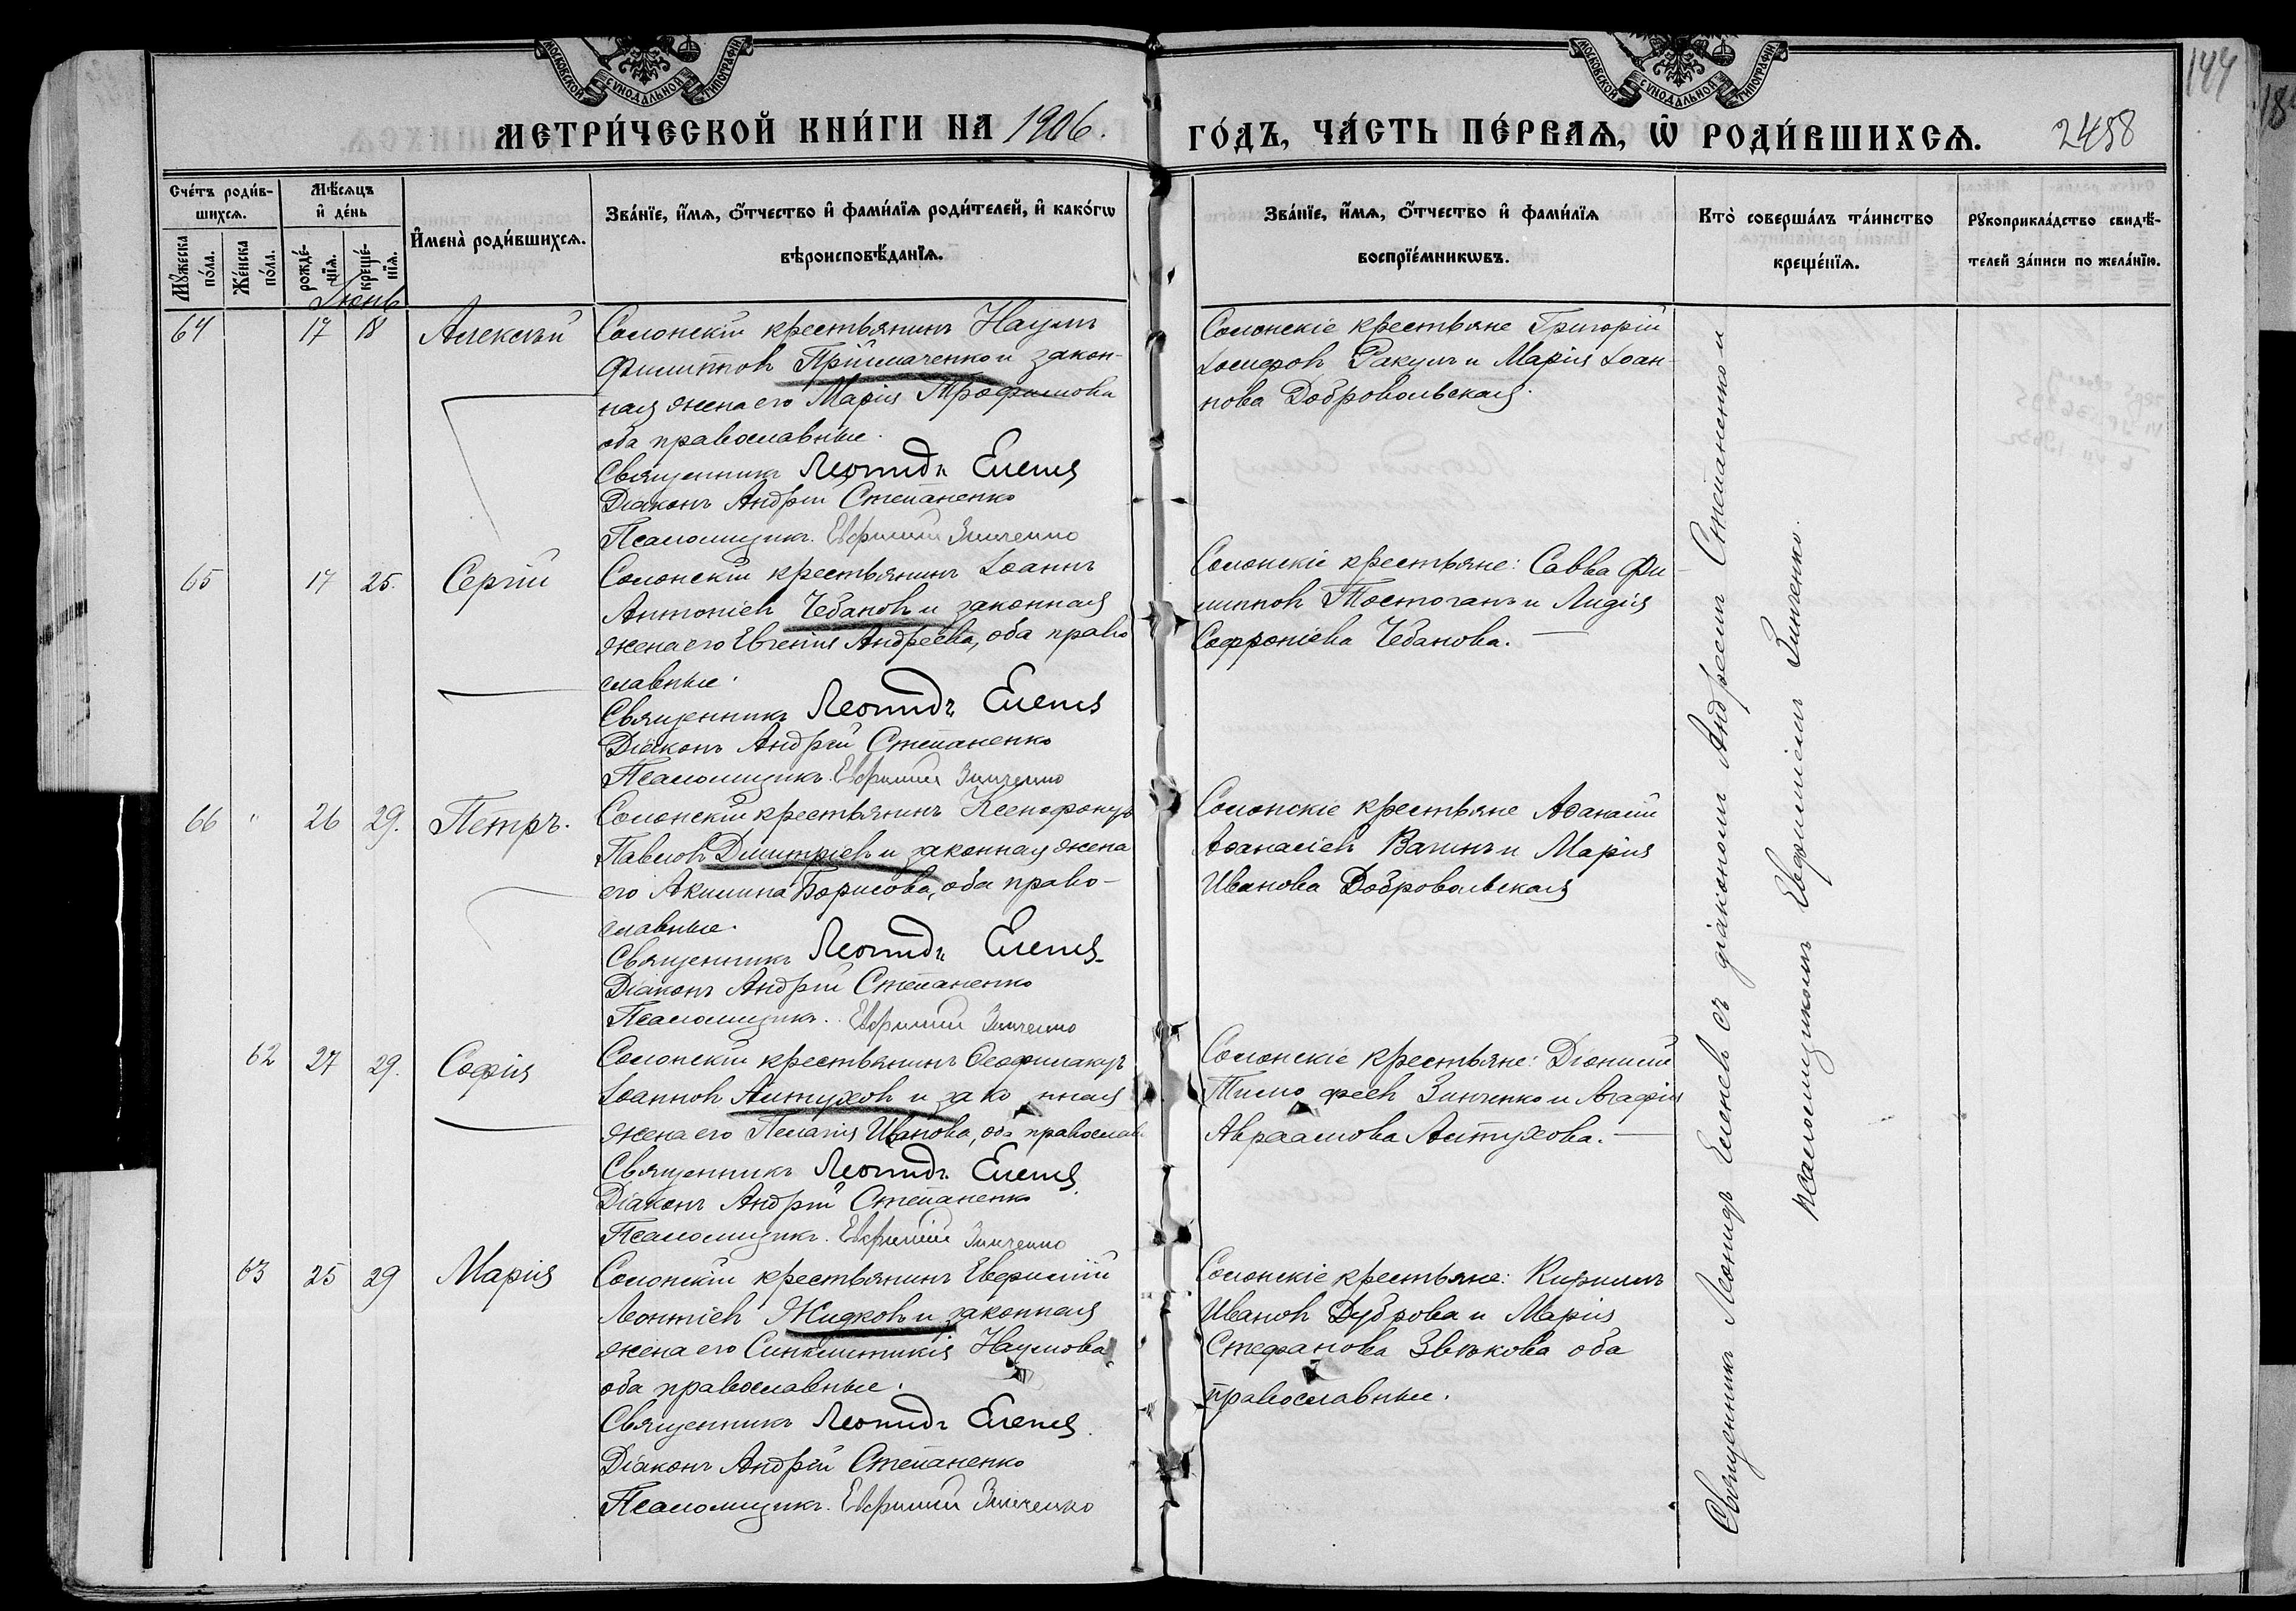 МОСКОВСКОЙ СѴНОДАЛЬНОЙ ТИПОГРАФІИ
МОСКОВСКОЙ СѴНОДАЛЬНОЙ ТИПОГРАФІИ
144
МЕТРИ́ЧЕСКОЙ КНИ́ГИ НА 1906.
ГО́ДЪ, ЧА́СТЬ ПЕ́РВАѦ, Ѡ҆ РОДИ́ВШИХСѦ.
2458
Сче́тъ роди́в-
шихсѧ.
Мꙋ́жеска по́ла.
Же́нска по́ла.
Мѣ́сѧцъ
и҆ де́нь
рожде́-
нїѧ.
креще́-
нїѧ.
И҆мена̀ роди́вшихсѧ.
Зва́нїе, и҆́мѧ, ѻ҆́тчество и҆ фами́лїѧ роди́телей, и҆ како́гѡ
вѣроисповѣ́данїѧ.
Зва́нїе, и҆́мѧ, ѻ҆́тчество и҆ фами́лїѧ
воспрїе́мникѡвъ.
Кто̀ соверша́лъ та́инство
креще́нїѧ.
Рꙋкоприкла́дство свидѣ́-
телей за́писи по жела́нїю.
Іюнь
64 17 18 Алексѣй
Солонскій крестьянинъ Наумъ
Филипповъ Пріймаченко и закон-
ная жена его Марія Трофимова
оба православные.
Священникъ Леонидъ Еленев
Діаконъ Андрей Степаненко
Псаломщикъ Евфимій Зинченко
Солонскіе крестьяне Григорій
Іосифовъ Ракулъ и Марія Іоан-
нова Добровольская.
65 17 25. Сергій
Солонскій крестьянинъ Іоаннъ
Антоніевъ Чебановъ и законная
жена его Евгенія Андреева, оба право
славные.
Священникъ Леонидъ Еленев
Діаконъ Андрей Степаненко
Псаломщикъ Евфимій Зинченко
Солонскіе крестьяне: Савва Фи-
липповъ и Лидія
Софроніева Чебанова.
66 26 29. Петръ.
Солонскій крестьянинъ Ксенофонтъ
Павловъ Димитріевъ и законная жена
его Акилина Борисова, оба право-
славные.
Священникъ Леонидъ Еленев
Діаконъ Андрей Степаненко
Псаломщикъ Евфимій Зинченко
Солонскіе крестьяне Аѳанасій
Аѳанасіевъ и Марія
Иванова Добровольская
62 27 29. Софія
Солонскій крестьянинъ Ѳеофилактъ
Іоанновъ Алтуховъ и законная
жена его Пелагія Иванова, оба православ.
Священникъ Леонидъ Еленев
Діаконъ Андрей Степаненко
Псаломщикъ Евфимій Зинченко
Солонскіе крестьяне: Діонисій
Тимофеевъ Зинченко и Агафія
Авраамова Алтухова.
63 25 29 Марія
Солонскій крестьянинъ Евфимій
Леонтіевъ Жидковъ и законная
жена его Синклитикія Наумова
оба православные.
Священникъ Леонидъ Еленев
Діаконъ Андрей Степаненко
Псаломщикъ Евфимій Зинченко
Солонскіе крестьяне: Кириллъ
Ивановъ Дуброва и Марія
Стефанова Звѣкова оба
православные.
Священникъ Леонидъ Еленевъ съ діакономъ Андреемъ Степаненко и
псаломщикомъ Евфиміемъ Зинченко.